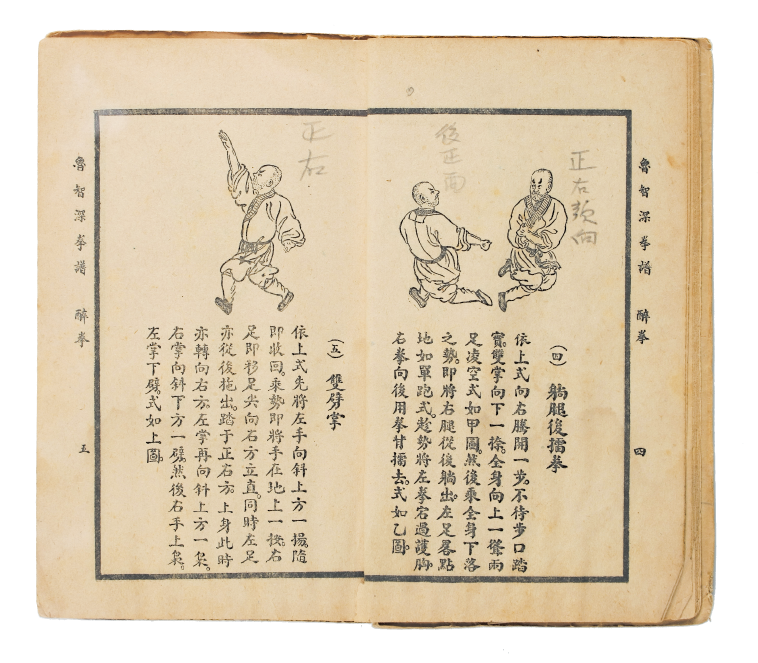 魯智深拳譜 醉拳
四
正右頦向
後正面
(四) 躺腿後擂拳
依上式向右騰開一步。不待步口踏
實。雙掌向下一捺。全身向上一聳。兩
足凌空式如甲圖。然後乘全身下落
之勢。即將右腿從後躺出。左足畧點
地如單跪式。趁勢將左拳宕過護脚。
右拳向後用拳甘擂去。式如乙圖。
魯智深拳譜 醉拳
五
正右
(五) 雙劈掌
依上式先將左手向斜上方一揚。隨
即收回。乘勢即將手在地上一按。右
足即移足尖向右方立直。同時左足
亦從後拖出。踏于正右方。上身此時
亦轉向右方。左掌再向斜上方一梟。
右掌向斜下方一劈。然後右手上梟。
左掌下劈。式如上圖。